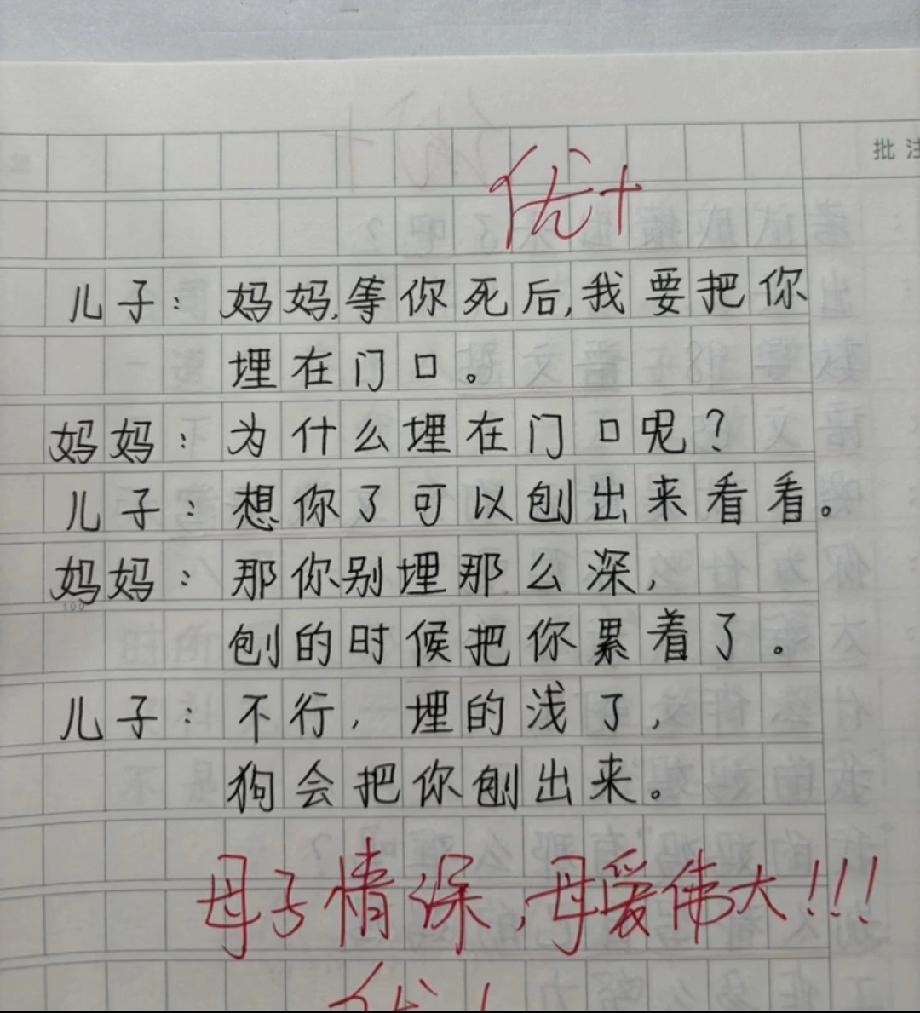 批注
优+
儿子：妈妈,等你死后,我要把你
埋在门口。
妈妈：为什么埋在门口呢？
儿子：想你了可以刨出来看看。
妈妈：那你别埋那么深，
刨的时候把你累着了。
儿子：不行，埋的浅了，
狗会把你刨出来。
母子情深,母爱伟大!!!